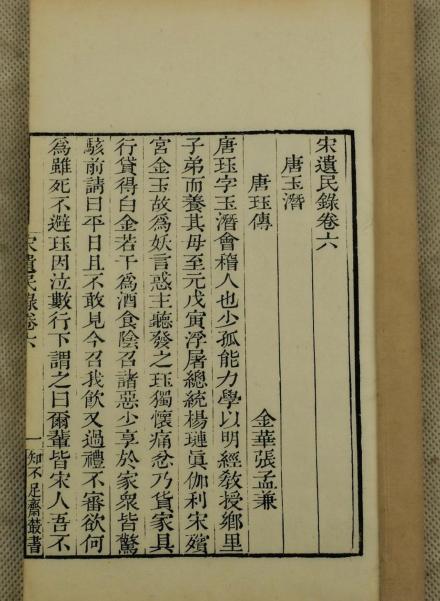 宋遺民錄卷六
唐玉潛
唐珏傳
金華張孟兼
唐珏字玉潛會稽人也少孤能力學以明經教授鄉里
子弟而養其母至元戊寅浮屠總統楊璉真伽利宋殯
宮金玉故為妖言惑主聽發之珏獨懷痛忿乃貨家具
行貸得白金若干為酒食陰召諸惡少享於家眾皆驚
駭前請曰平日且不敢見今召我飲又過禮不審欲何
為雖死不避珏因泣數行下謂之曰爾輩皆宋人吾不
宋遺民錄卷六
一
知不足齋叢書